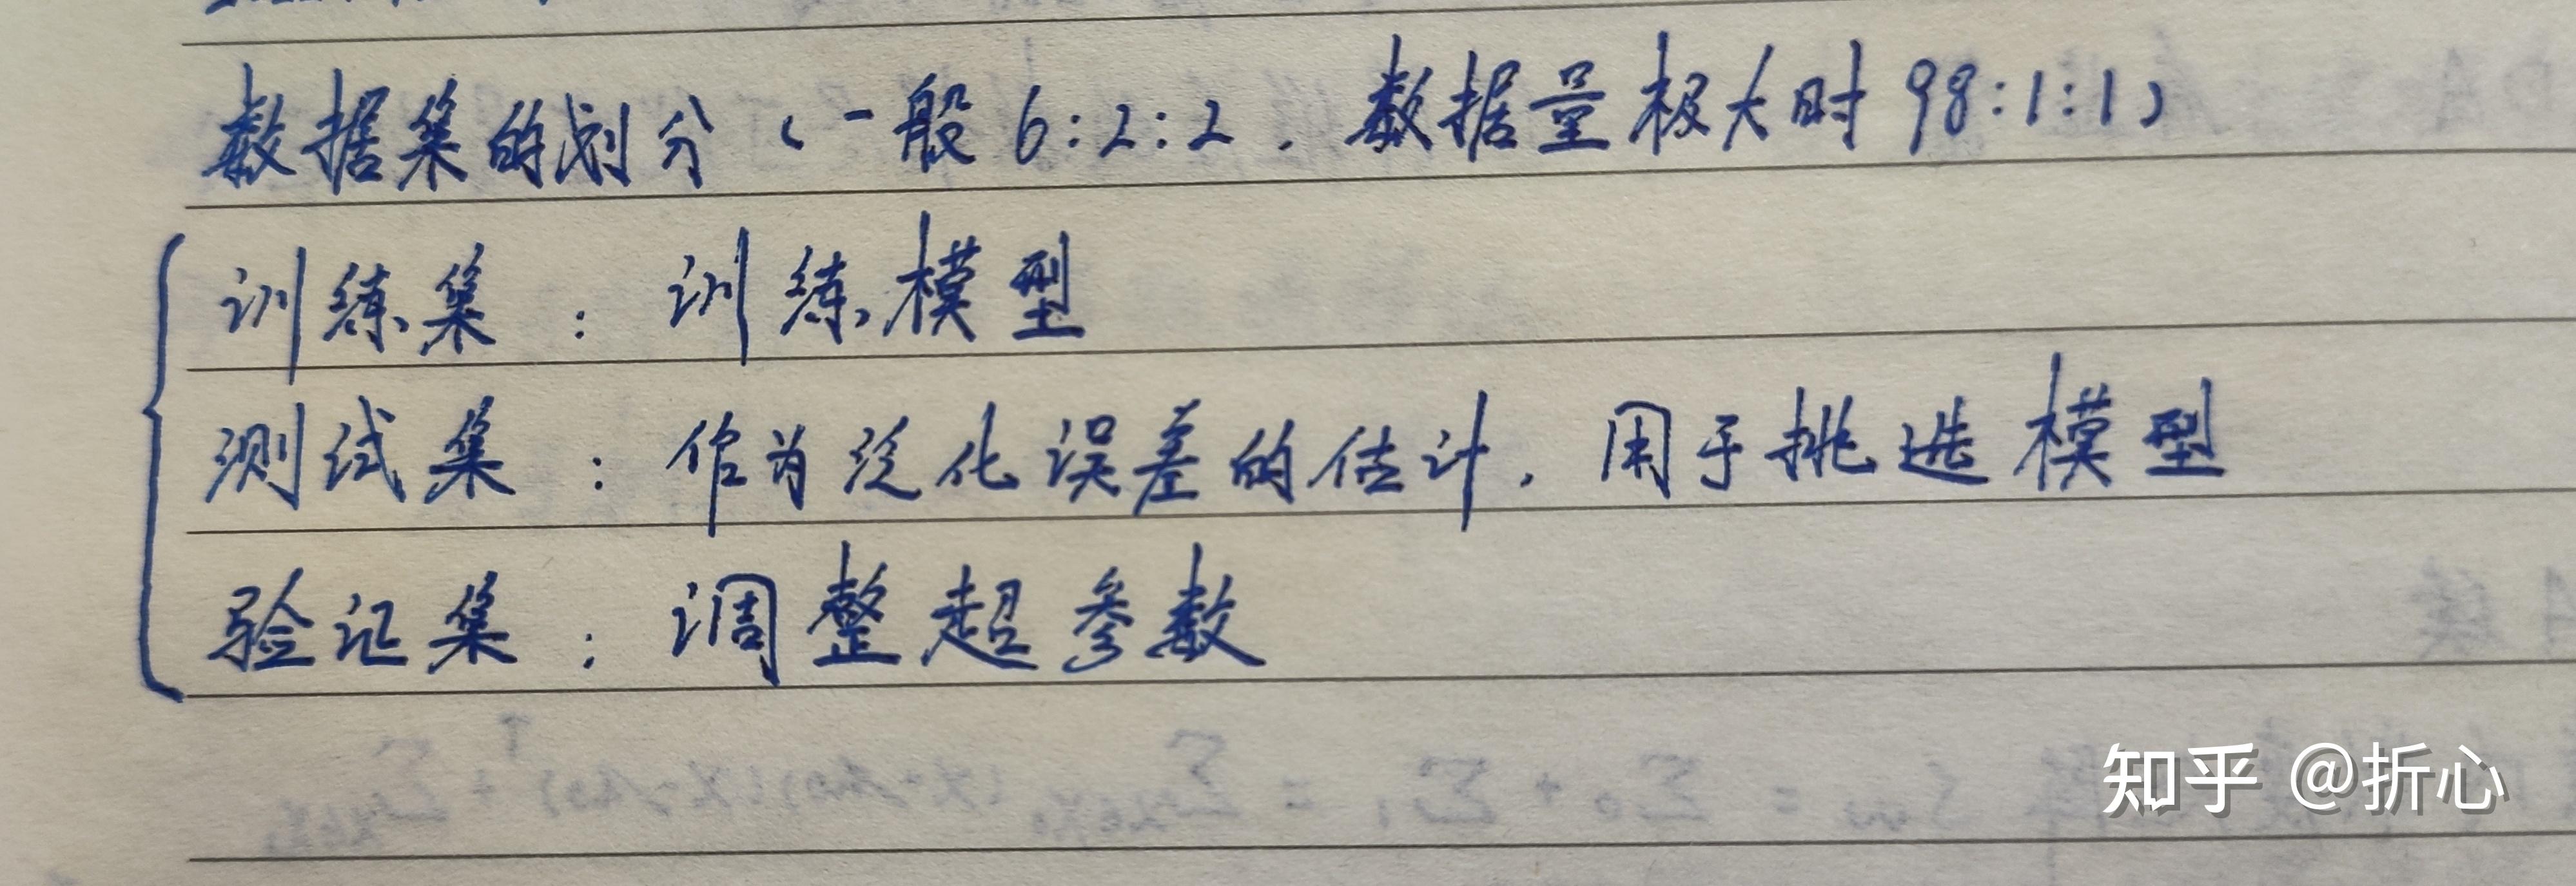 数据集的划分（一般6:2:2，数据量极大时98:1:1）
训练集：训练模型
测试集：作为泛化误差的估计，用于挑选模型
验证集：调整超参数
知乎 @折心